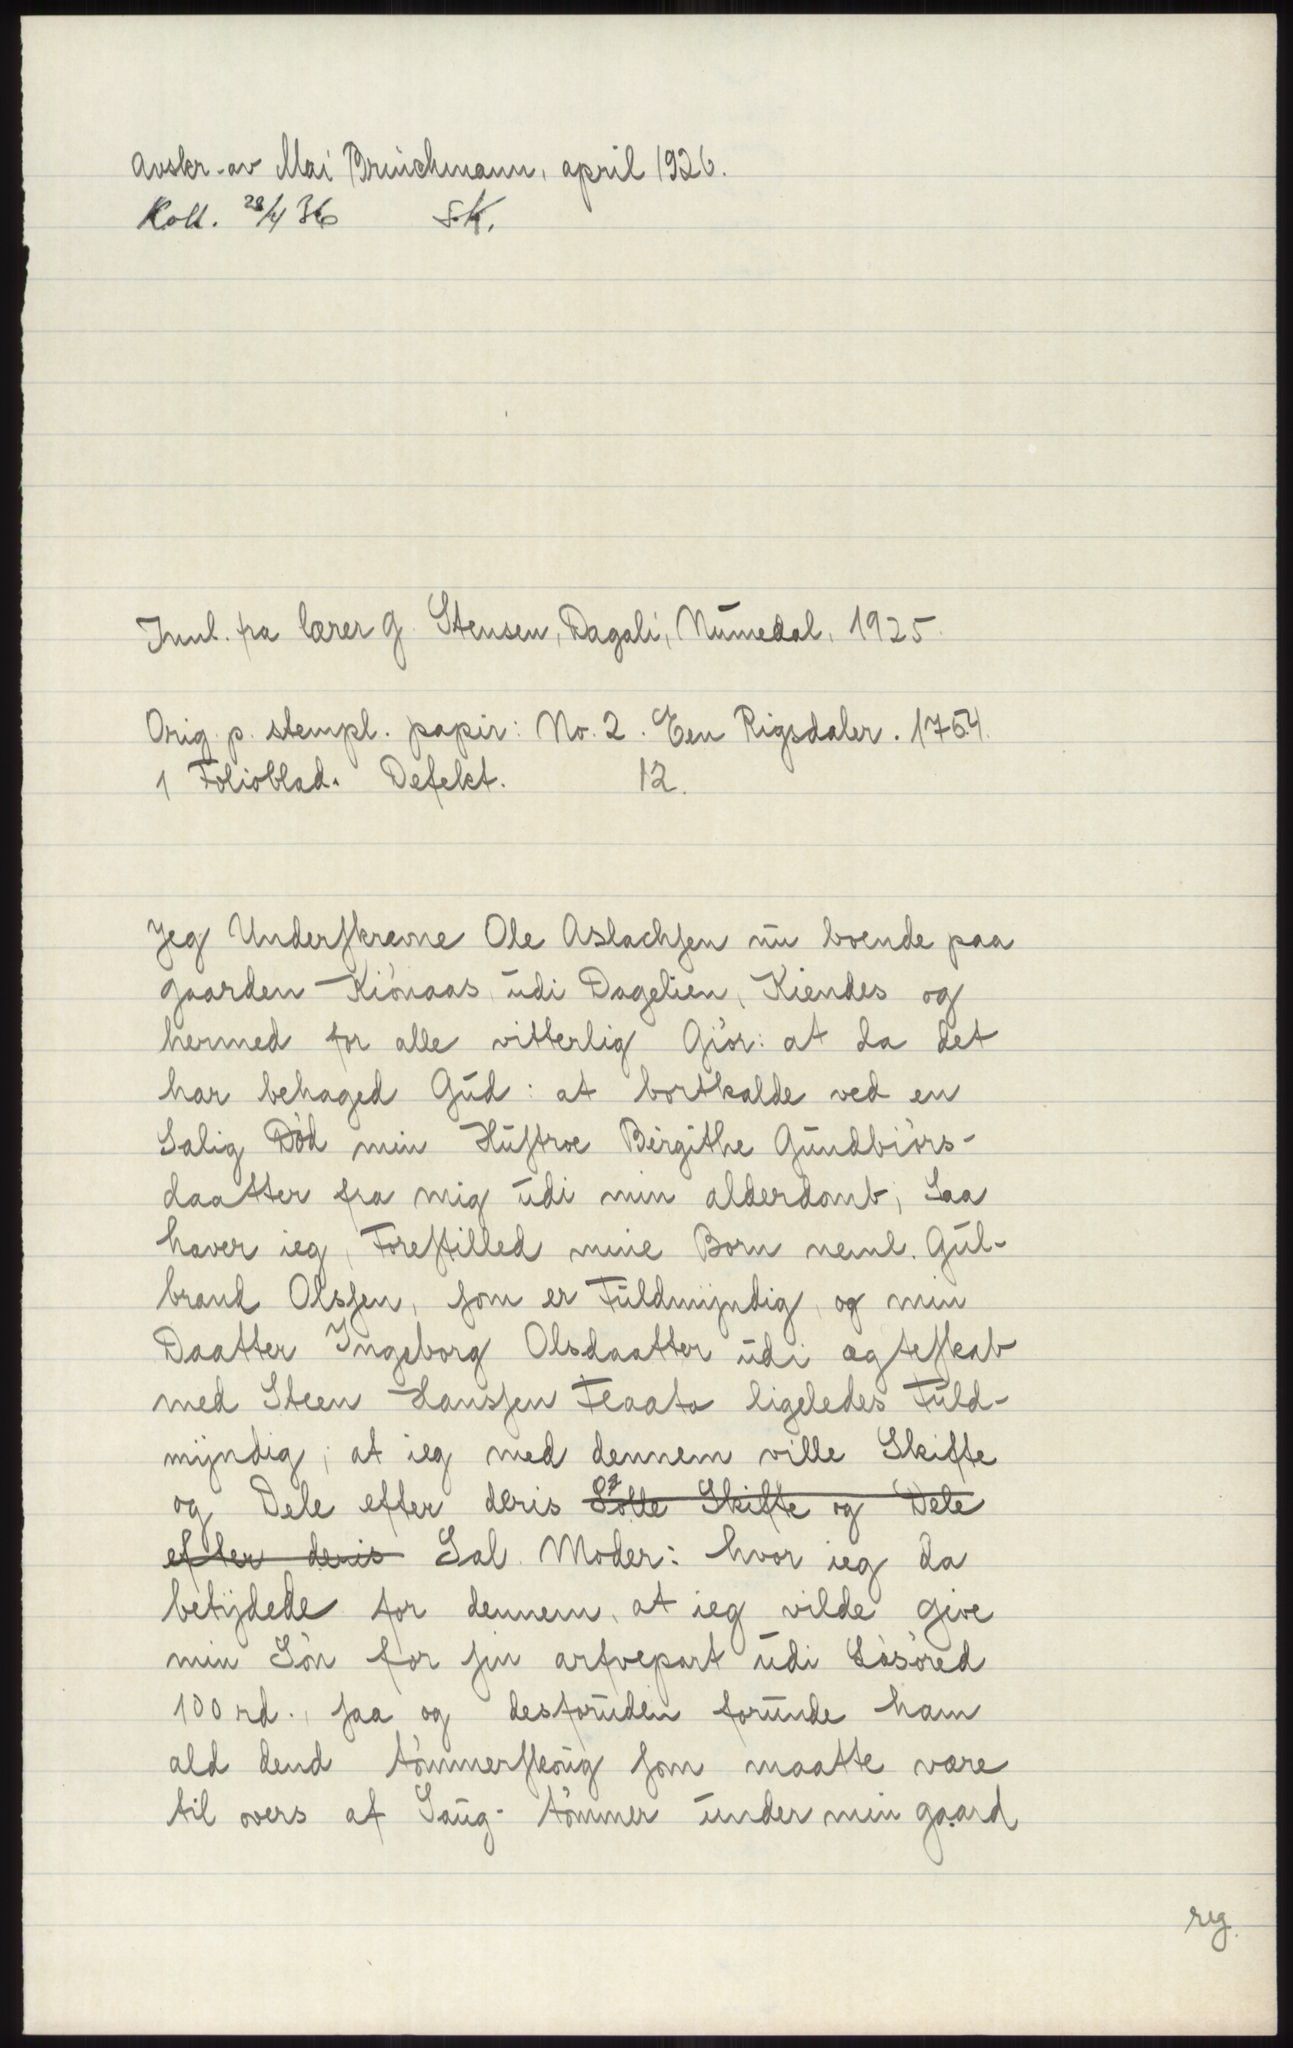 Avskr. av Mai Brinchmann, april 1926.
Koll. 28/4 36 S.K.
Innl. fra lærer G. Stensen, Dagali, Numedal, 1925.
Orig. p. stempl. papir: No. 2. Een Rigsdaler. 1754.
1 Folioblad. Defekt. 12.
Jeg Underskrevne Ole Aslachsen nu boende paa
gaarden Kiönaas udi Dagelien, Kiendes og
hermed for alle vitterlig Giör: at da det
har behaged Gud: at bortkalde ved en
Salig Död min Hustroe Birgithe Gundbiörs-
daatter fra mig udi min alderdomb, Saa
haver ieg, Forestilled mine Born neml. Gul-
brand Olssen, som er Fuldmyndig, og min
Daatter Ingeborg Olsdaatter udi ægteskab
med Steen Hanssen Flaata ligeledes Fuld-
myndig, at ieg med dennem ville Skifte
og Dele efter deris Skifte og Dele
efter deris Sal. Moder: hvor ieg da
betydede for dennem, at ieg vilde give
min Sön for sin arfvepart udi Lösöred
100 rd., saa og desforuden forunde ham
ald dend tömmerskoug som maatte være
til overs af Saug-tömmer under min gaard
reg.